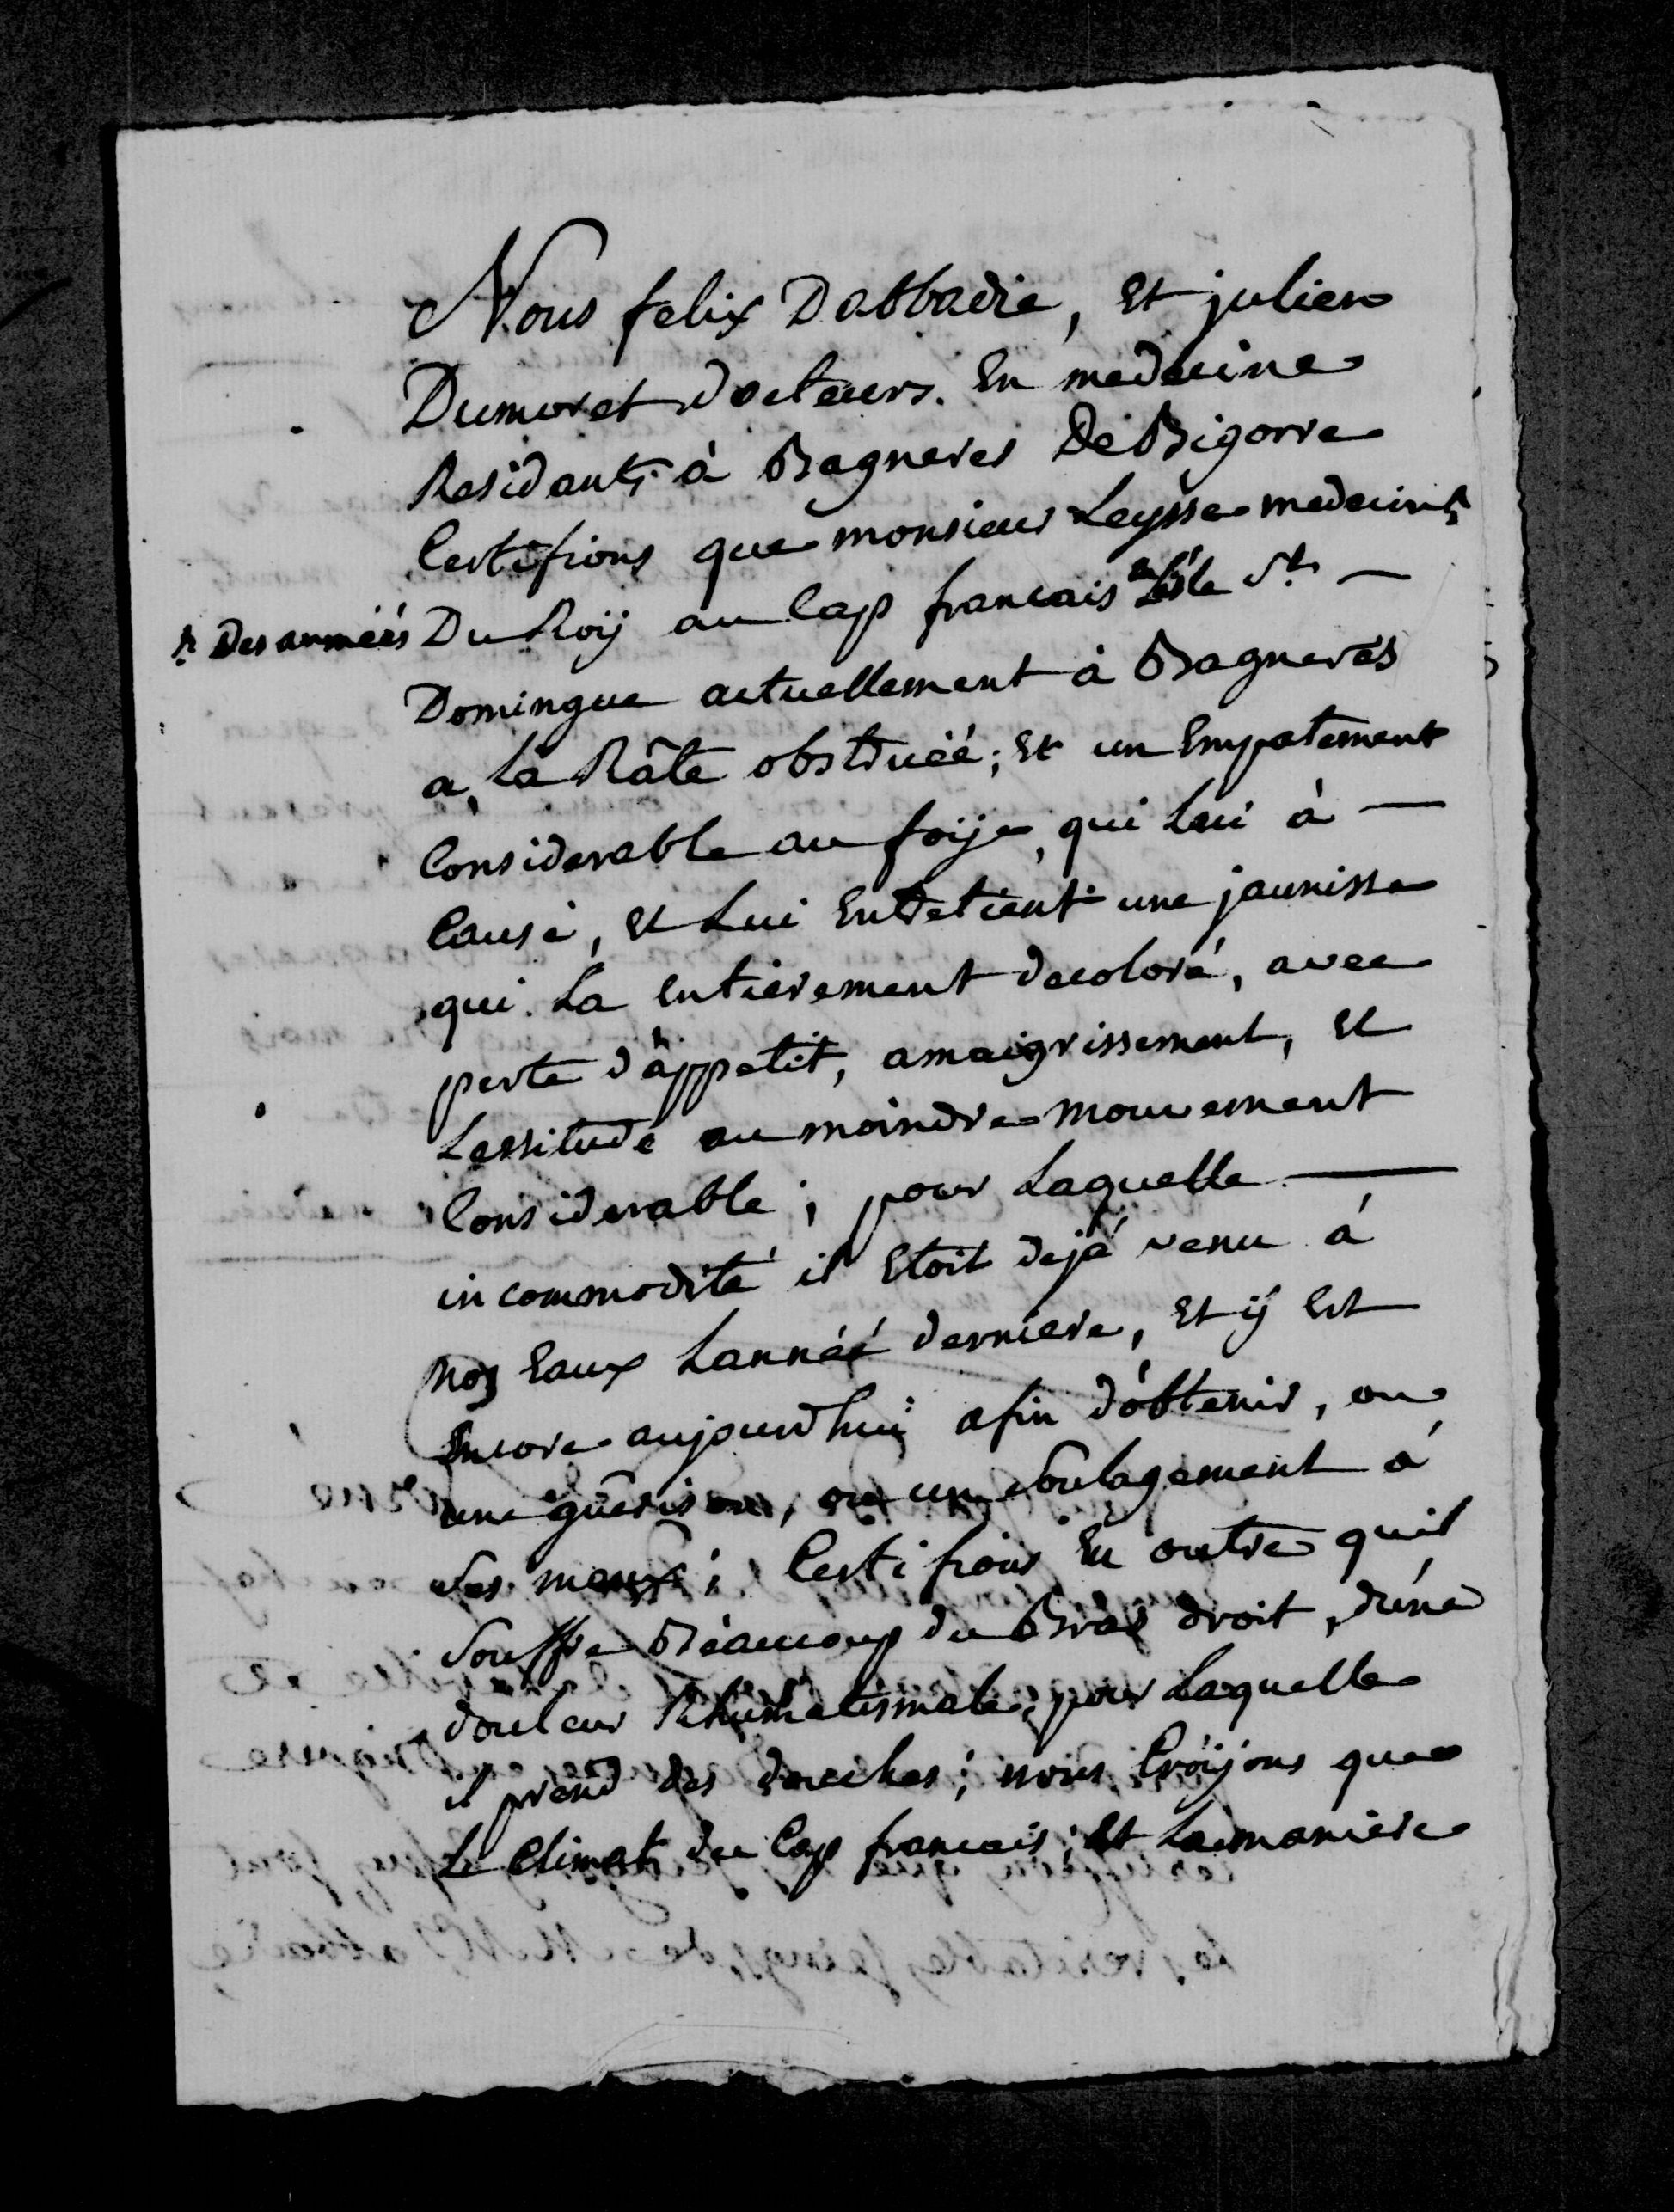 Nous felix Dabbadie, Et julien
Dumoret docteurs. En medecine
Residants à Bagneres De Bigorre
Certifions que monsieur Leysse medecin
Des armeés Du Roÿ au Cap francais en Lisle St. —
Domingue actuellement à Bagneres
a La Râte obstruéé; Et un Empatement
Considerable au foÿe, qui Lui à —
Causé, Et Lui Entretient une jaunisse
qui La Entierement decoloré, avec
perte d'appetit, amaigrissement, Et
Lassitude au moindre mouvement
Considerable; pour Laquelle —
incommodité il Etoit dejá venu á
nos Eaux Lannéé derniere, Et ÿ Est
Encore aujourdhui afin d'obtenir, ou
une guerison, ou un Soulagement á
Ses maux; Certifions En outre quil
Souffre Béaucoup du Bras droit, d'une
douleur Rhumatismale, pour Laquelle
il prend des douches; nous Croÿons que
Le Climat du Cap francais; Et La maniere